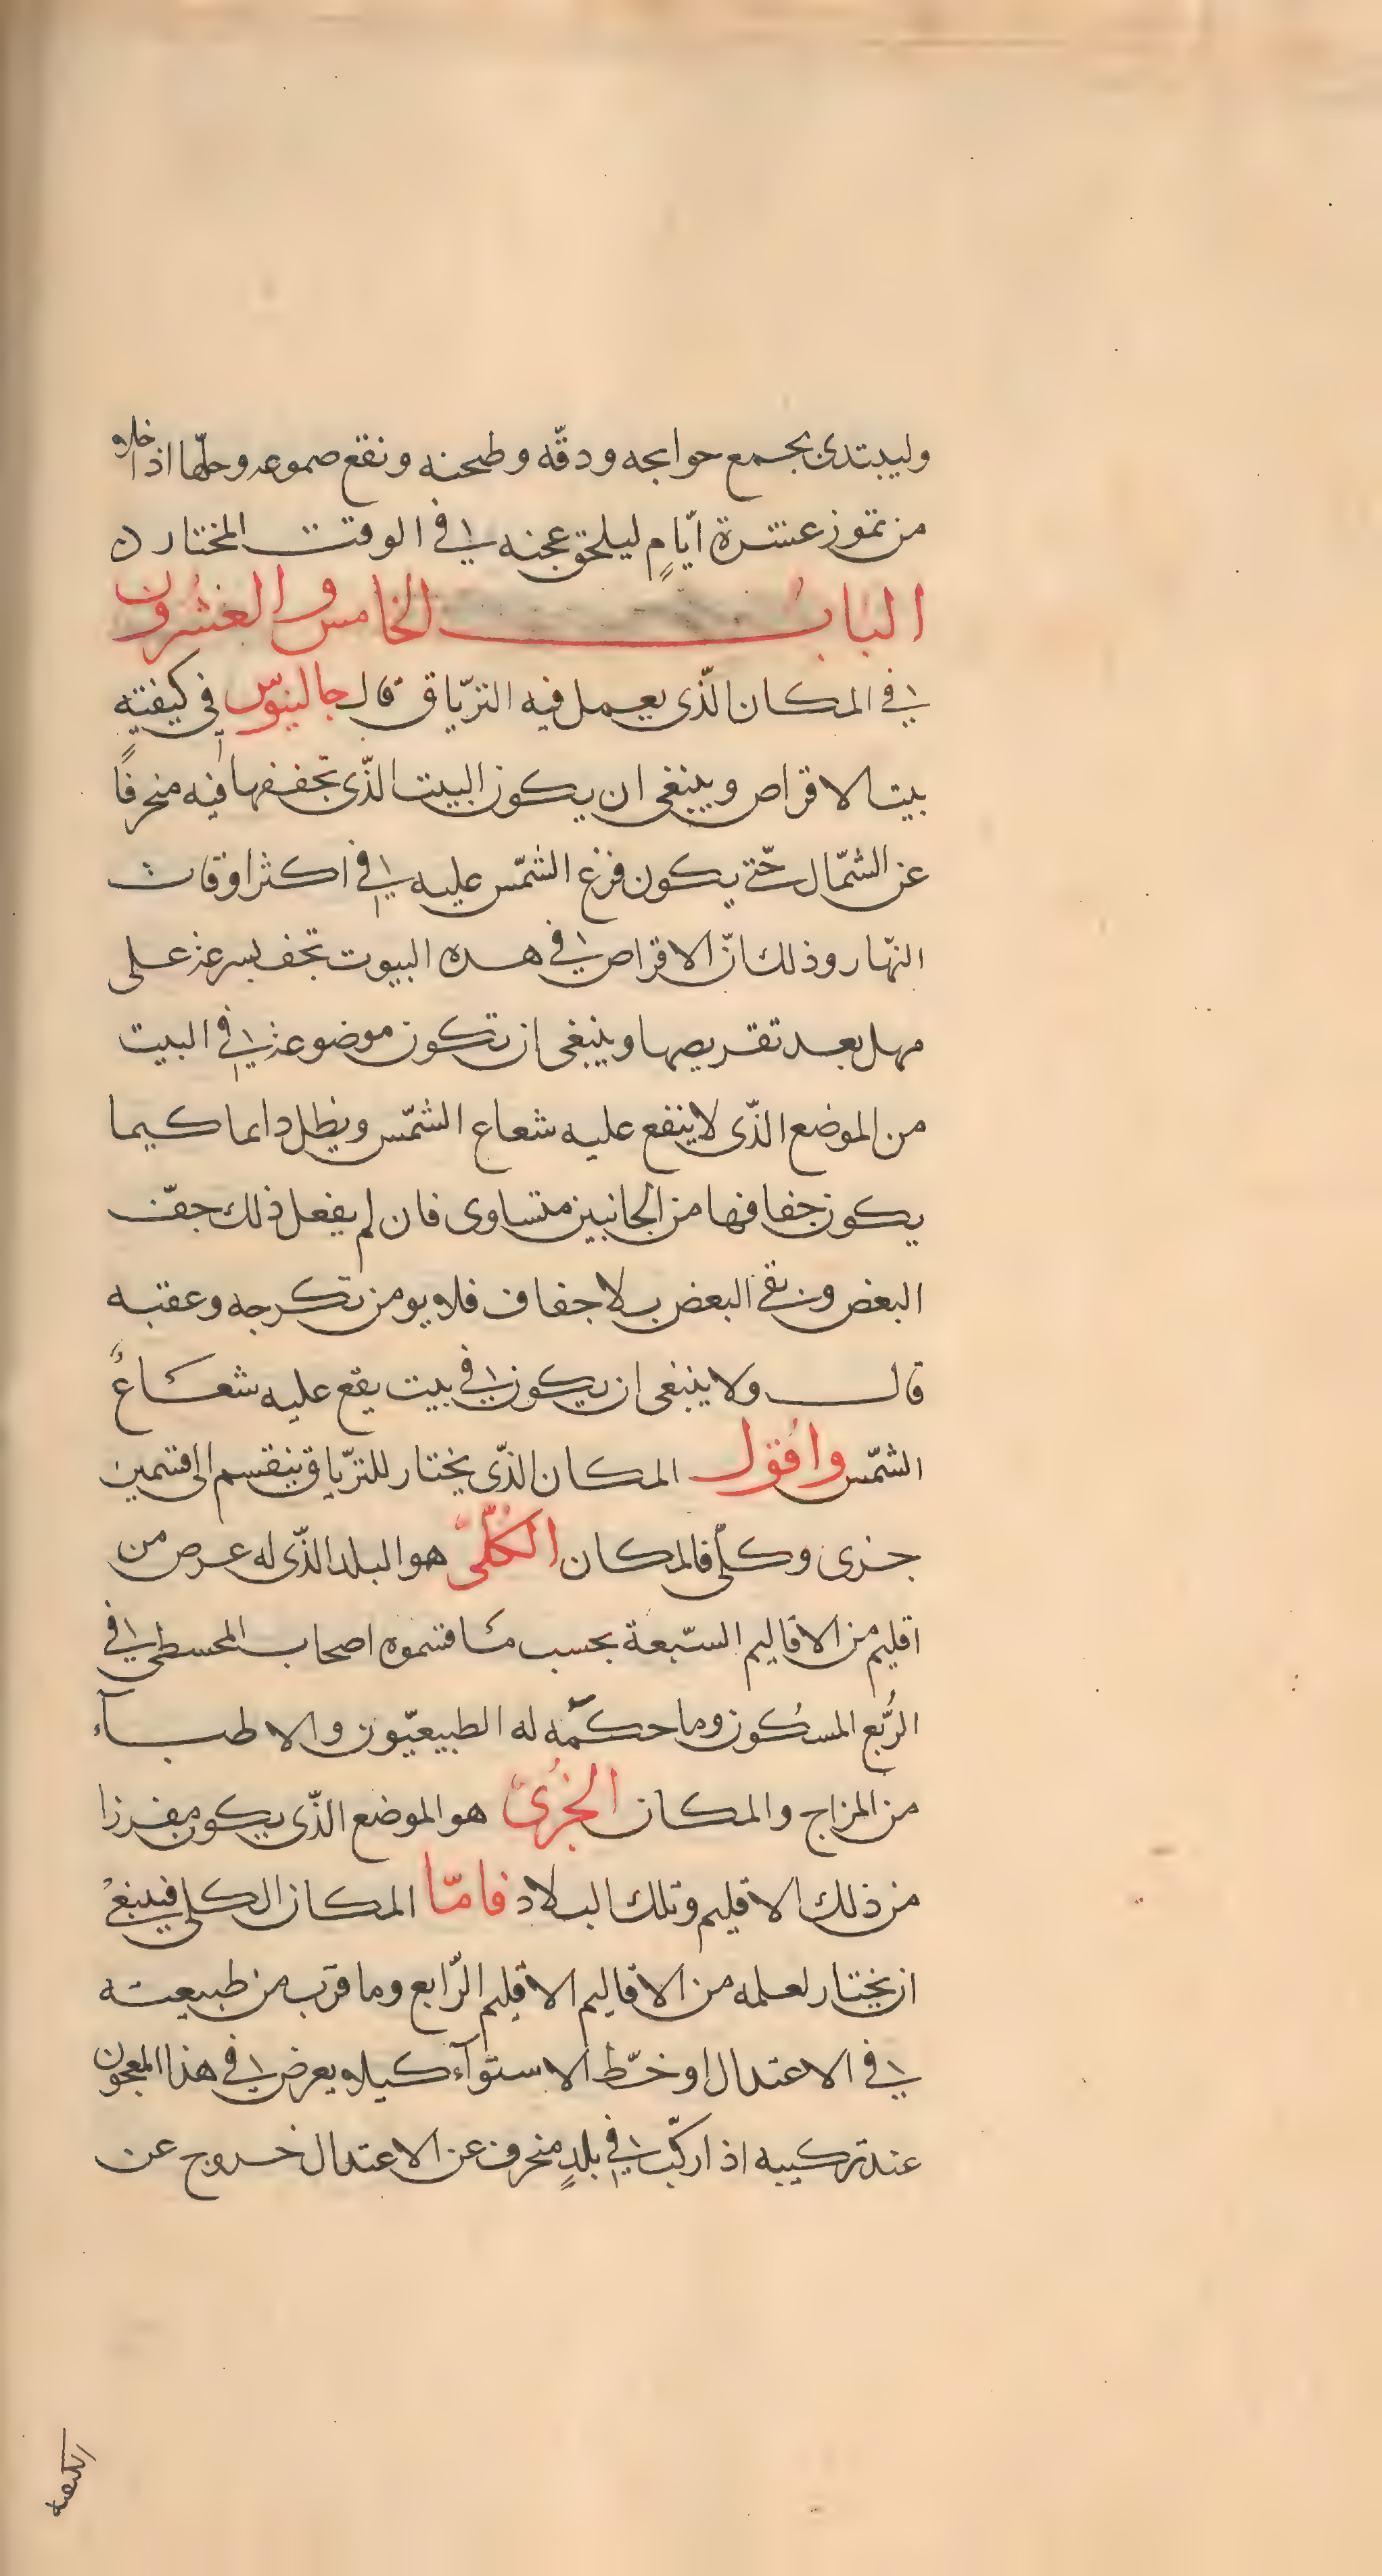 وليبتدى بجمع حوابجه ودقّه وطحنه ونقع صموعه وحلّها اذا خلو
من تموز عشرة ايّامٍ ليلحق عجنه في الوقت المختار ن
الباب الخامس والعشرون
في المكان الذّى يعمل فيه الترّياق قال جالينوس في كيفيته
بيت الاقراص وينبغى ان يكون البيت الذّى تجففها فيه منحرفًا
عن الشمّال حتّى يكون فرغ الشمّس عليه في اكثر اوقات
النهّار وذلك انّ الاقراص في هده البيوت تجف بسرعة على
مهل بعد تقريصها وينبغى ان تكون موضوعة في البيت
من الموضع الذّى لا ينفع عليه شعاع الشمّس ويظل داىما كيما
يكون جفافها من الجانبين متساوى فان لم يفعل ذلك جفّ
البعض وبقى البعض بلا جفاف فلا يومن تكرجه وعقبه
قال ولا ينبغى ان يكون في بيت يقع عليه شعاعُ
الشمّس واقول المكان الذّى يختار للترّياق ينقسم الى قسمين
جزى وكلّى فالمكان الكُلّىّ هو البلد الذّى له عرض من
اقليم من الاقاليم السّبعة بحسب ما قسموه اصحاب المحسطى في
الرُبّع المسكُون وما حكمّه له الطبيعيّون والاطبآء
من المزاج والمكان الجُزىّ هو الموضع الذّى يكون مفرزا
من ذلك الاقليم وتلك البلاد فامّا المكان الكلى فينبغى
ان يختار لعلمه من الاقاليم الاقليم الرّابع وما قرب من طبيعته
في الاعتدال او خطّ الاستوآء كيلا يعرض في هذا المعجون
عند تركيبه اذا ركّب في بلدٍ منحرف عن الاعتدال خروج عن